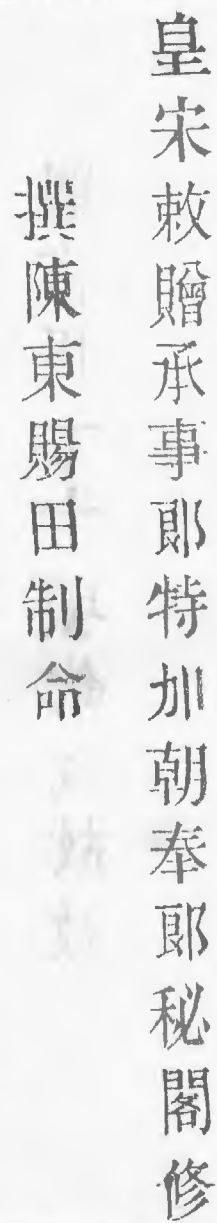 皇宋敕贈承事郎特加朝奉郎秘閣修
撰陳東賜田制命